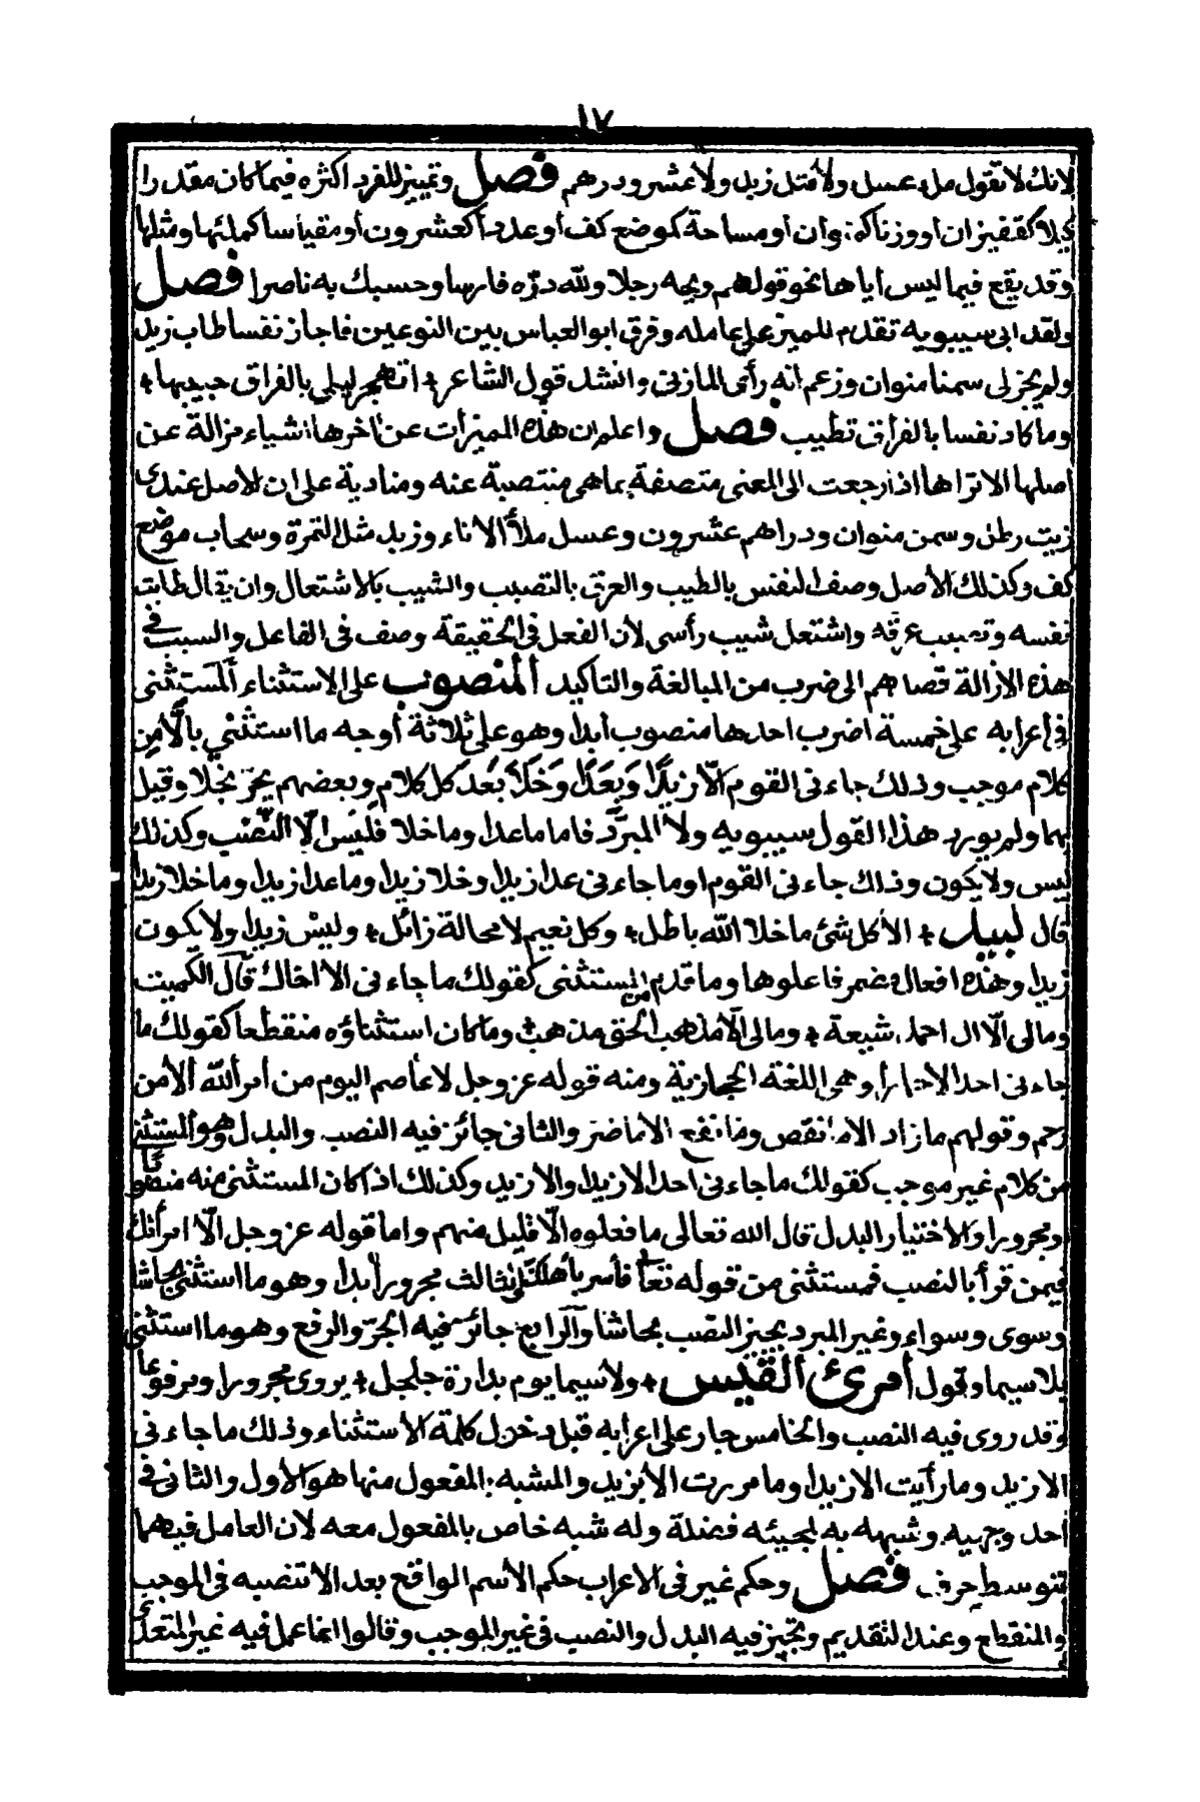 ١٧
لانك لا تقول ملء عسل ولا مثل زبد ولا عشرو درهم فصل وتمييز المفرد اكثره فيما كان مقدرا
كيلا كقفيزان او وزنا كمنوان او مساحة كموضع كف او عددا كعشرون او مقياسا كملئها ومثلها
وقد يقع فيما ليس اياها نحو قولهم ويحه رجلا ولله درّه فارسا وحسبك به ناصرا فصل
ولقد ابى سيبويه تقدم المميز على عامله وفرق ابو العباس بين النوعين فاجاز نفسا طاب زيد
ولم يجز لى سمنا منوان وزعم انه رأى المازنى وانشد قول الشاعر اتهجر ليلي بالفراق حبيبها
وما كاد نفسا بالفراق تطيب فصل واعلم ان هذه المميزات عن آخرها اشياء مزالة عن
اصلها الا تراها اذا رجعت الى المعنى متصفة بما هى منتصبة عنه ومنادية على ان الاصل عندى
زيت رطل وسمن منوان ودراهم عشرون وعسل ملأ الاناء وزبد مثل التمرة وسحاب موضع
كف وكذلك الأصل وصف النفس بالطيب والعرق بالتصبب والشيب بالاشتعال وان يقال طابت
نفسه وتصبب عرقه واشتعل شيب رأسى لأن الفعل فى الحقيقة وصف فى الفاعل والسبب فى
هذه الازالة قصدهم الى ضرب من المبالغة والتاكيد المنصوب على الاستثناء المستثنى
فى إعرابه على خمسة اضرب احدها منصوب أبدا وهو على ثلاثة أوجه ما استثنى بالّا من
كلام موجب وذلك جاءنى القوم الّا زيدًا وبعَدَا وخَلَا بَعْدَ كل كلام وبعضهم يجرّ بخلا وقيل
بهما ولم يورد هذا القول سيبويه ولا المبرَّد فاما ما عدا وما خلا فليس الّا النَّصْب وكذلك
ليس ولا يكون وذلك جاءنى القوم او ما جاءنى عدا زيدا وخلا زيدا وما عدا زيدا وما خلا زيدا
قال لبيد الا كل شئ ما خلا الله باطل وكل نعيم لا محالة زائل وليس زيدا ولا يكون
زيدا وهذه افعال مضمر فاعلوها وما قدم من المستثنى كقولك ما جاءنى الا اخاك قال الكميت
ومالى الّا ال احمد شيعة ومالى الّا مذهب الحق مذهب وما كان استثناؤه منقطعا كقولك ما
جاءنى احد الا حمارا وهى اللغة الحجازية ومنه قوله عز وجل لا عاصم اليوم من أمر الله الا من
رحم وقولهم ما زاد الا ما نقص وما نفع الا ما ضر والثانى جائز فيه النصب والبدل وهو المستثنى
من كلام غير موجب كقولك ما جاءنى أحد الا زيدا والا زيد وكذلك اذا كان المستثنى منه منصوبا
او مجرورا والأختيار البدل قال الله تعالى ما فعلوه الّا قليل منهم واما قوله عز وجل الّا امرأتك
فيمن قرأ بالنصب فمستثنى من قوله تعالى فأسر بأهلك الثالث مجرور أبدا وهو ما استثنى بحاشا
وسوى وسواء وغير المبرد يجيز النصب بحاشا والرابع جائز فيه الجرّ والرفع وهو ما استثنى
بلا سيما وقول أمرئ القيس ولا سيما يوم بدارة جلجل يروى مجرورا ومرفوعا
وقد روى فيه النصب والخامس جار على اعرابه قبل دخول كلمة الأستثناء وذلك ما جاءنى
الا زيد وما رأيت الا زيدا وما مررت الا بزيد والمشبه بالمفعول منها هو الأول والثانى فى
احد وجهيه وشبهه به لمجيئه فضلة وله شبه خاص بالمفعول معه لان العامل فيهما
بتوسط حرف فصل وحكم غير فى الاعراب حكم الأسم الواقع بعد الا تنصبه فى الموجب
والمنقطع وعند التقديم وتجيز فيه البدل والنصب فى غير الموجب وقالوا انما عمل فيه غير المتعدى